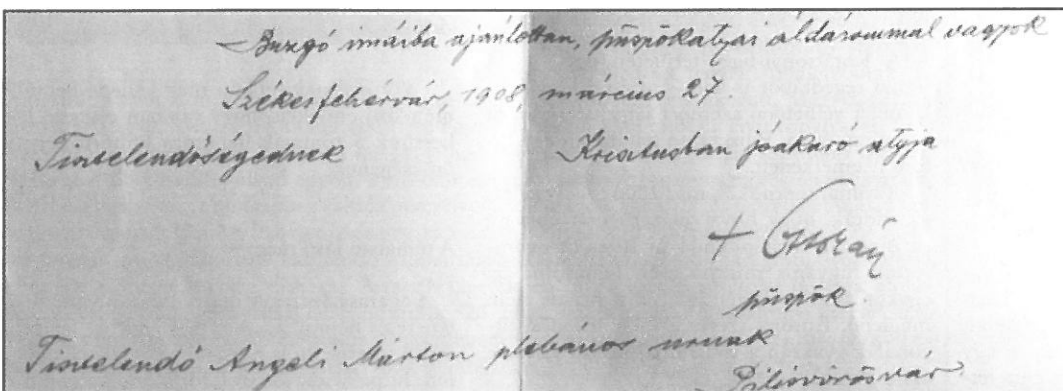 Buzgó imáiba ajánlottan, püspökatyai áldásommal vagyok
Székesfehérvár, 1908, március 27.
Tisztelendőségednek Krisztusban jóakaró atyja
+ Ottokár
püspök.
Tisztelendő Angeli Márton plébános urnak
Pilisvörösvár